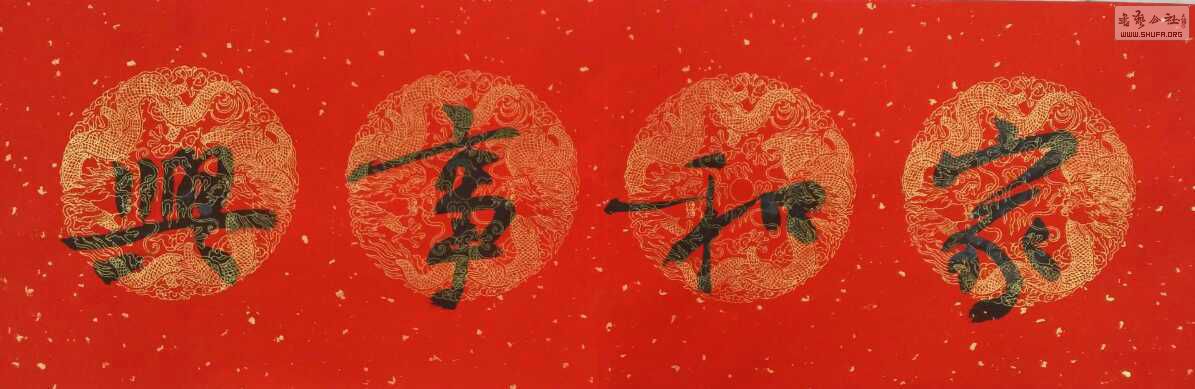 家和事興
書藝公社
WWW.SHUFA.ORG